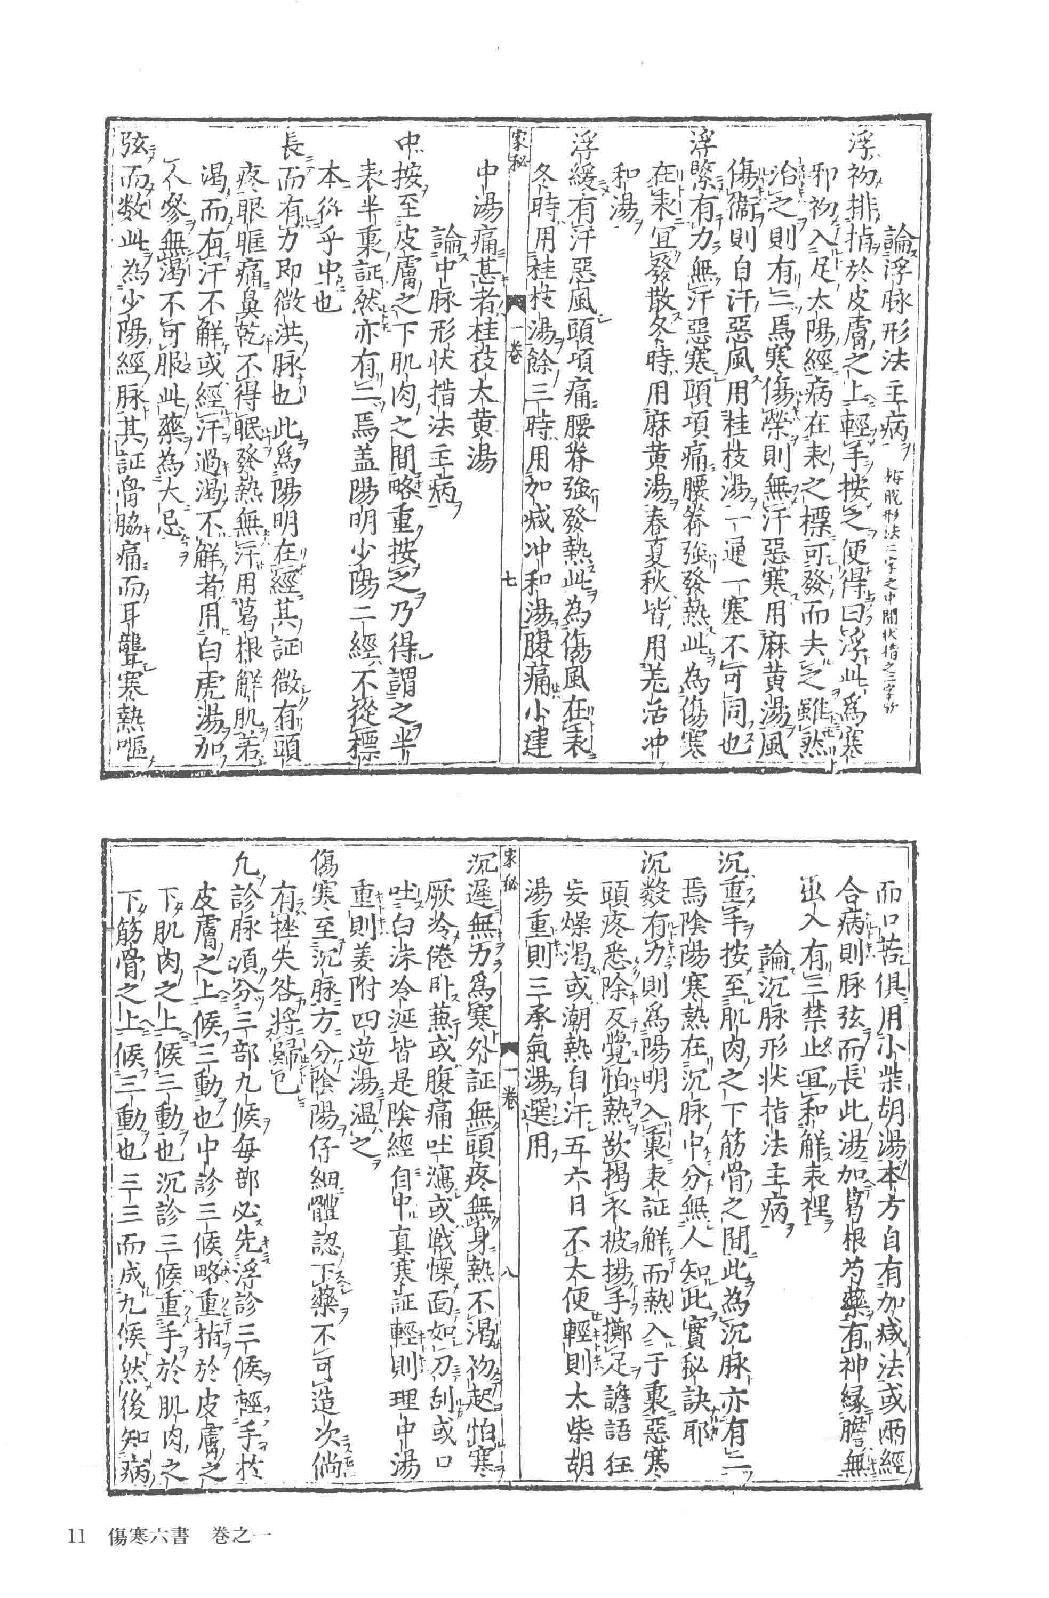 論浮脉形法主病
浮初排指於皮膚之上輕手按之便得曰浮此爲寒
邪初入足太陽經病在表之標可發而去之雖然
治之則有二焉寒傷榮則無汗惡寒用麻黄湯風
傷衞則自汗惡風用桂枝湯一通一塞不可同也
浮緊有力無汗惡寒頭項痛腰脊強發熱此為傷寒
在表宜發散冬時用麻黄湯春夏秋皆用羌活冲
和湯
浮緩有汗惡風頭項痛腰脊強發熱此為傷風在表
冬時用桂枝湯餘三時用加减冲和湯腹痛小建
家秘 一卷 七
中湯痛甚者桂枝大黄湯
論中脉形状指法主病
中按至皮膚之下肌肉之間略重按之乃得謂之半
表半裏証然亦有二焉盖陽明少陽二經不從標
本從乎中也
長而有力即微洪脉也此爲陽明在經其証微有頭
疼眼眶痛鼻乾不得眠發熱無汗用葛根解肌若
渴而有汗不解或經汗過渴不解者用白虎湯加
人參無渴不可服此藥為大忌
弦而数此為少陽經脉其証胷脇痛而耳聾寒熱嘔
而口苦俱用小柴胡湯本方自有加减法或兩經
合病則脉弦而長此湯加葛根芍藥有神緣膽無
出入有三禁止宜和解表裡
論沉脉形状指法主病
沉重手按至肌肉之下筋骨之間此為沉脉亦有二
焉陰陽寒熱在沉脉中分無人知此實秘訣耶
沉数有力則爲陽明入裏表証解而熱入于裏惡寒
頭疼悉除反覺怕熱欲揭衣被揚手擲足譫語狂
妄燥渴或潮熱自汗五六日不大便輕則大柴胡
湯重則三承氣湯選用
家秘 一卷 八
沉遲無力爲寒外証無頭疼無身熱不渴初起怕寒
厥冷倦卧蒸或腹痛吐瀉或戰慄面如刀刮或口
吐白沫冷涎皆是陰經自中真寒証輕則理中湯
重則姜附四逆湯溫之
傷寒至沉脉方分陰陽仔細體認下藥不可造次倘
有挫失咎將歸已
凢診脉須分三部九候每部必先浮診三候輕手於
皮膚之上候三動也中診三候略重指於皮膚之
下肌肉之上候三動也沉診三候重手於肌肉之
下筋骨之上候三動也三三而成九候然後知病
11 傷寒六書 巻之一